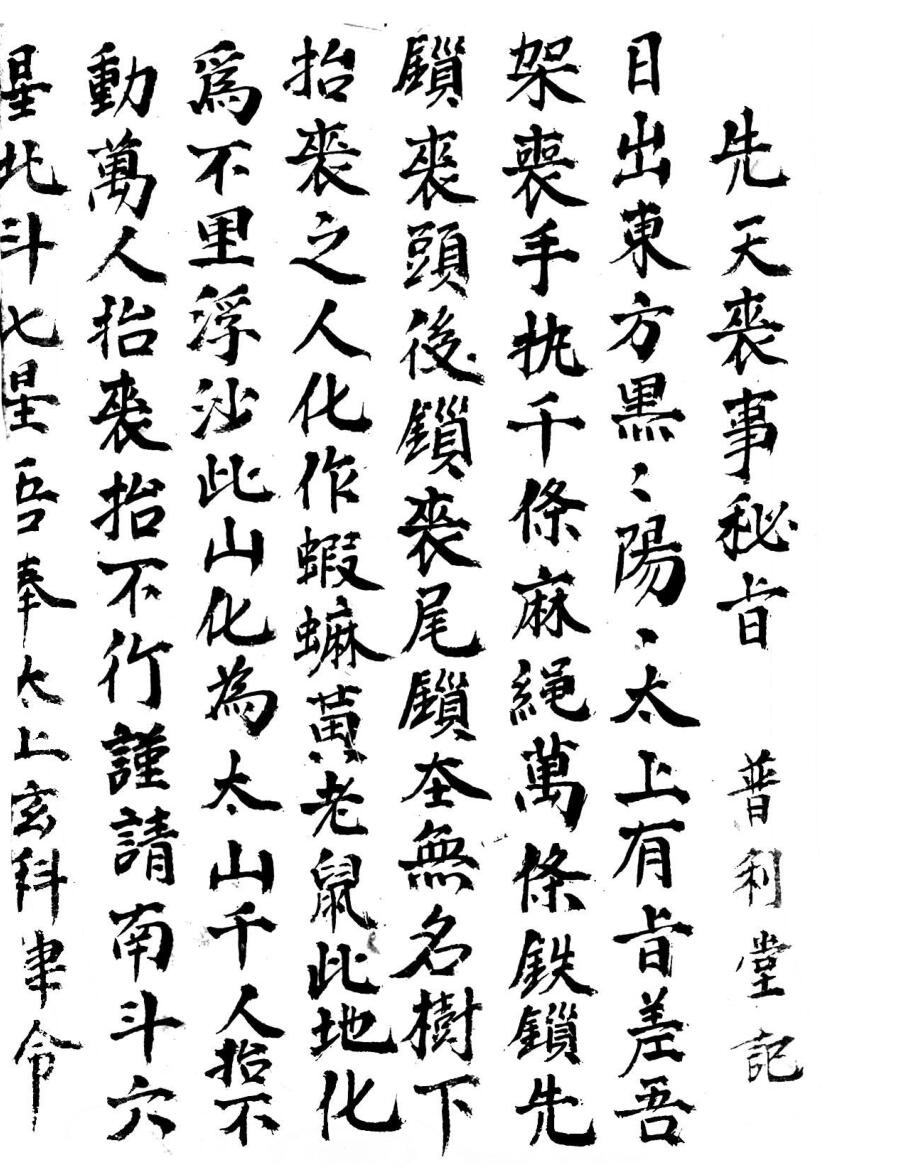 先天喪事秘旨 普利堂記
日出東方黒〻陽〻太上有旨差吾
架喪手执千條麻繩萬條鉄鎖先
鎖喪頭後鎖喪尾鎖在無名樹下
抬喪之人化作蝦蟆黃老鼠此地化
爲不里浮沙此山化為太山千人抬不
動萬人抬喪抬不行謹請南斗六
星北斗七星吾奉太上玄科律令